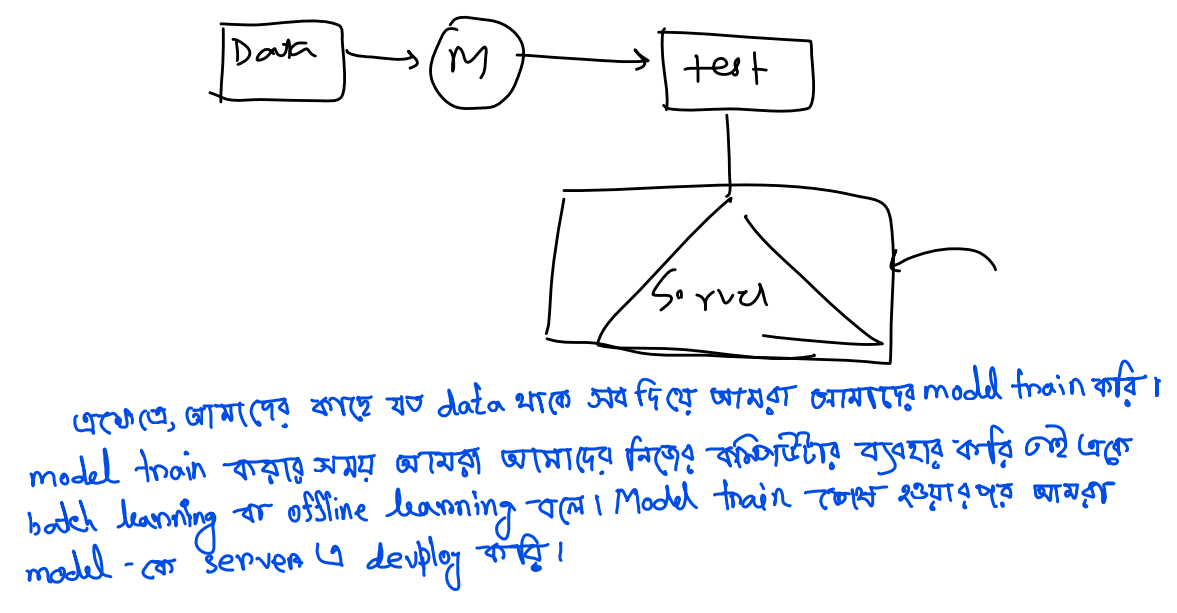 Data
M
test
Server
এক্ষেত্রে, আমাদের কাছে যত data থাকে সব দিয়ে আমরা আমাদের model train করি।
model train করার সময় আমরা আমাদের নিজের কম্পিউটার ব্যবহার করি তাই একে
batch learning বা offline learning বলে। Model train শেষ হওয়ার পরে আমরা
model - কে server এ devploy করি।